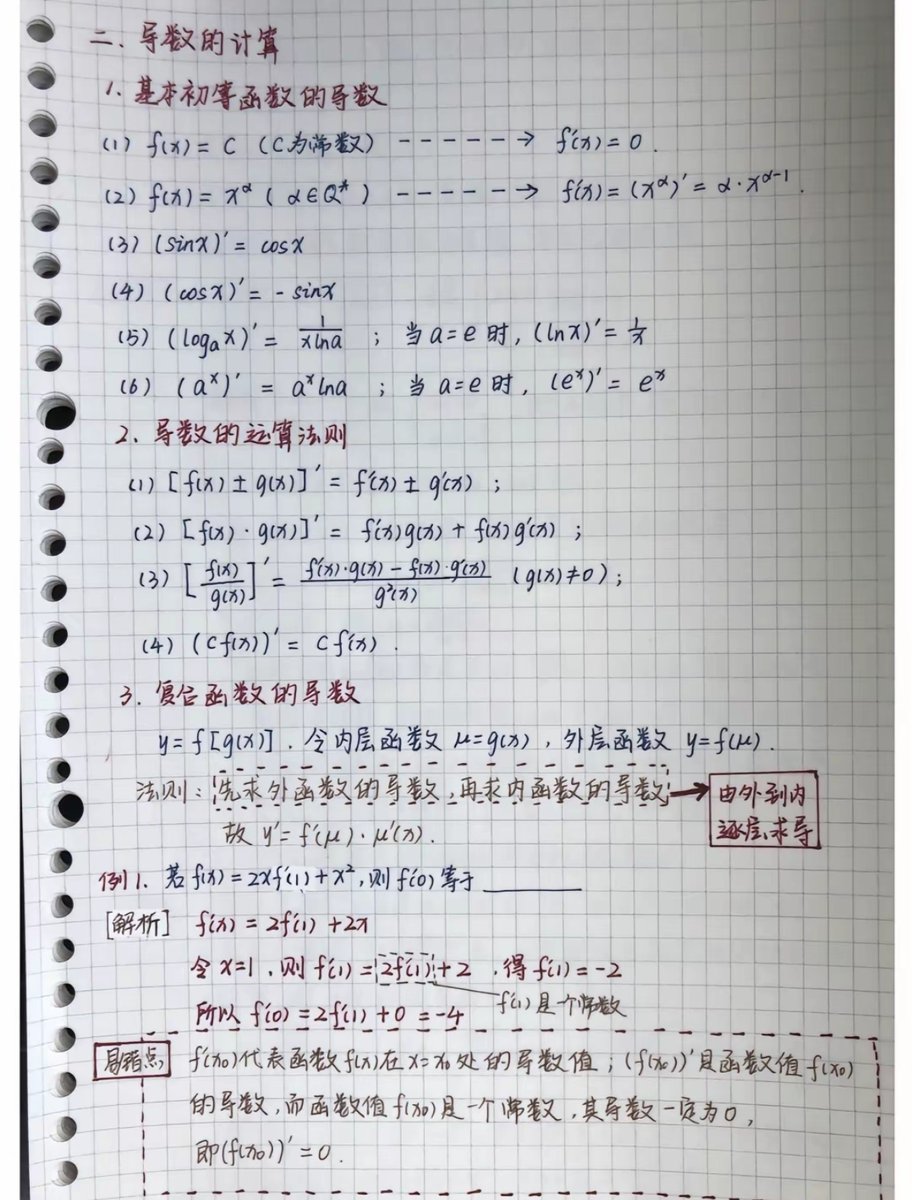 二、导数的计算
1. 基本初等函数的导数
(1) f(x) = C (C为常数) ------→ f'(x) = 0.
(2) f(x) = x^α (α∈Q*) ------→ f'(x) = (x^α)' = α·x^(α-1).
(3) (sinx)' = cosx
(4) (cosx)' = -sinx
(5) (logₐx)' = 1/(xlna) ; 当 a=e 时, (lnx)' = 1/x
(6) (a^x)' = a^x lna ; 当 a=e 时, (e^x)' = e^x
2. 导数的运算法则
(1) [f(x) ± g(x)]' = f'(x) ± g'(x) ;
(2) [f(x)·g(x)]' = f'(x)g(x) + f(x)g'(x) ;
(3) [f(x)/g(x)]' = (f'(x)·g(x) - f(x)·g'(x))/g²(x) (g(x)≠0) ;
(4) (cf(x))' = cf'(x) .
3. 复合函数的导数
y = f[g(x)]. 令内层函数 μ=g(x), 外层函数 y=f(μ).
法则: 先求外函数的导数, 再求内函数的导数 → 由外到内
逐层求导
故 y' = f'(μ)·μ'(x).
例1. 若 f(x) = 2xf'(1) + x², 则 f'(0) 等于 ______
[解析] f'(x) = 2f'(1) + 2x
令 x=1, 则 f'(1) = 2f'(1) + 2 , 得 f'(1) = -2
f'(1) 是一个常数
所以 f'(0) = 2f'(1) + 0 = -4
易错点 f'(x₀) 代表函数 f(x) 在 x=x₀ 处的导数值; (f(x₀))' 是函数值 f(x₀)
的导数, 而函数值 f(x₀) 是一个常数, 其导数一定为 0,
即 (f(x₀))' = 0 .